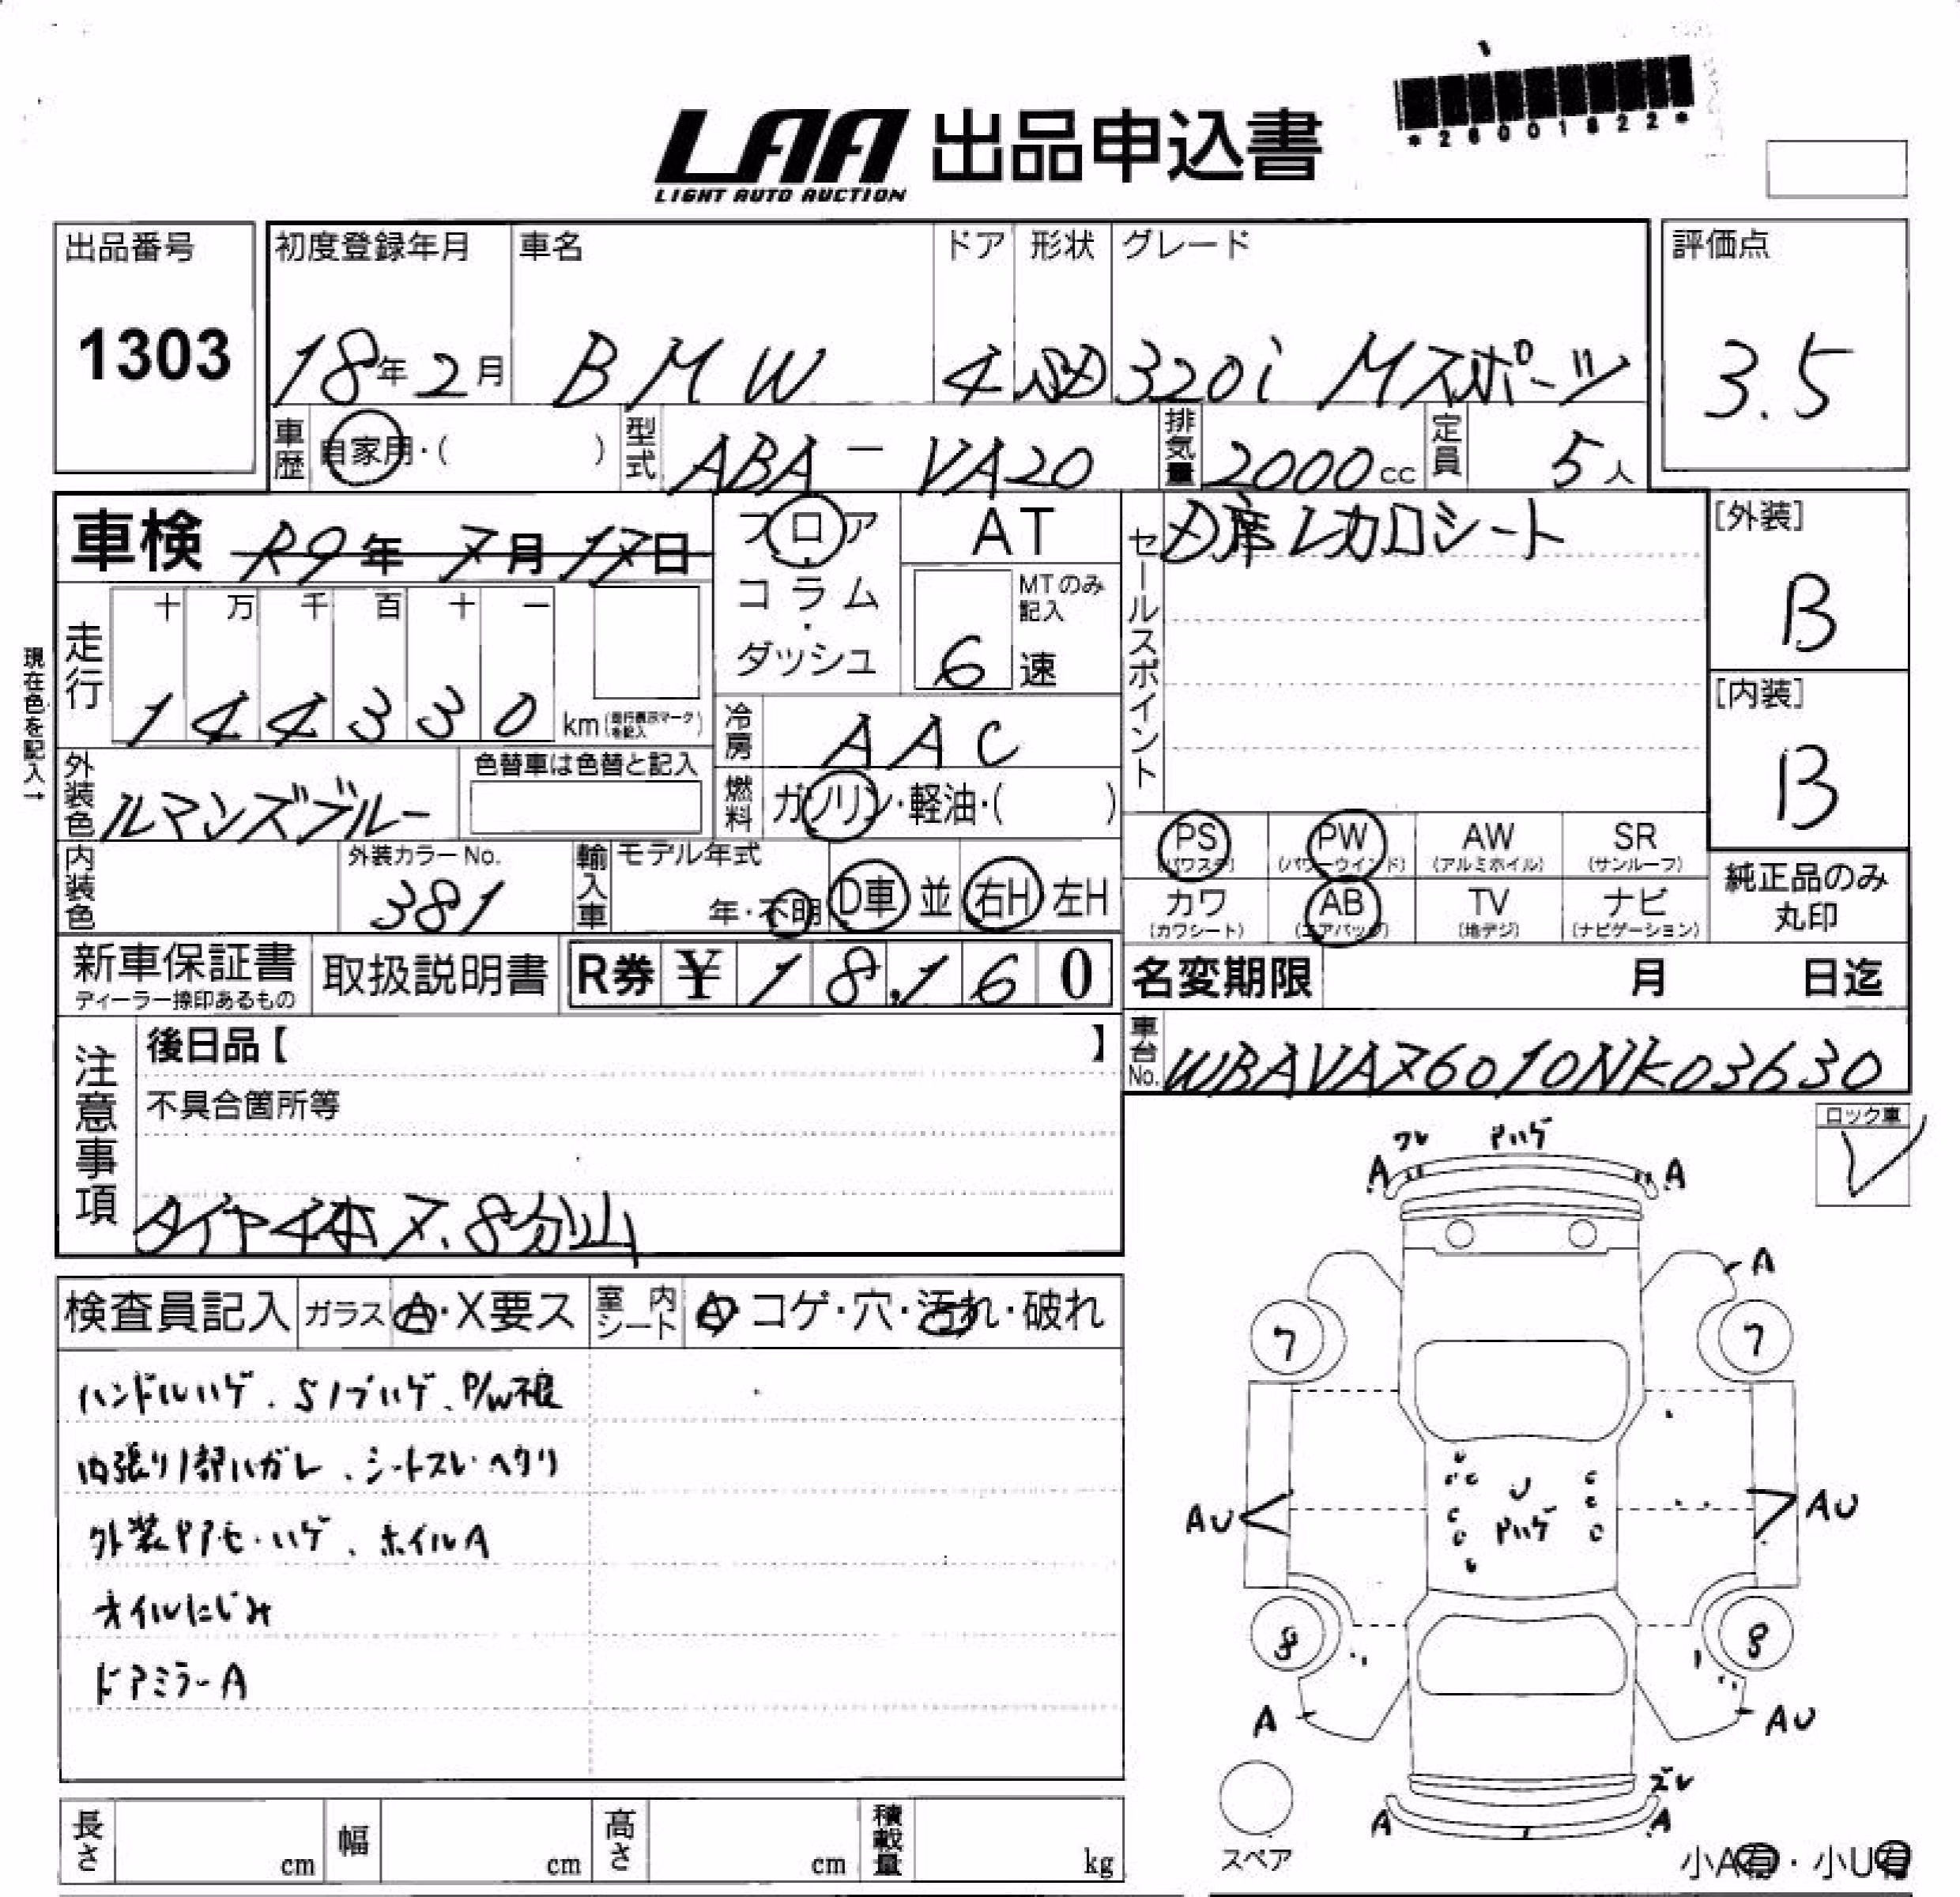 *26001822*
LAA 出品申込書
LIGHT AUTO AUCTION
出品番号
1303
初度登録年月
18年2月
車名
BMW
ドア
4
形状
SD
グレード
320i Mスポーツ
評価点
3.5
車歴
自家用・( )
型式
ABA-VA20
排気量
2000cc
定員
5人
車検 R9年7月17日
フロア
・
コラム
・
ダッシュ
AT
MTのみ記入
6速
セールスポイント
D席レカロシート
[外装]
B
[内装]
B
現在色を記入→
走行
十 万 千 百 十 一
144330 km(走行表示マークを記入)
冷房
AAC
外装色
ルマンズブルー
色替車は色替と記入
燃料
ガソリン・軽油・( )
内装色
外装カラーNo.
381
輸入車
モデル年式
年・不明
D車 並 右H 左H
PS(パワステ) PW(パワーウインド) AW(アルミホイル) SR(サンルーフ)
カワ(カワシート) AB(エアバッグ) TV(地デジ) ナビ(ナビゲーション)
純正品のみ
丸印
新車保証書
ディーラー捺印あるもの
取扱説明書
R券 ¥18,160
名変期限 月 日迄
車台No.
WBAVA76010NK03630
注意事項
後日品【 】
不具合箇所等
タイヤ4本7.8分山
ロック車
レ
検査員記入
ガラス A・X要ス
室内シート A・コゲ・穴・汚れ・破れ
ハンドルハゲ、Sノブハゲ、P/W不良
内張り1部ハガレ、シートスレ・ヘタリ
外装Pアセ・ハゲ、ホイルA
オイルにじみ
ドアミラーA
ワレ Pハゲ
A A
A
7 7
U
Pハゲ
AU AU
8 8
A AU
ズレ
A A
スペア
小A有・小U有
長さ cm
幅 cm
高さ cm
積載量 kg